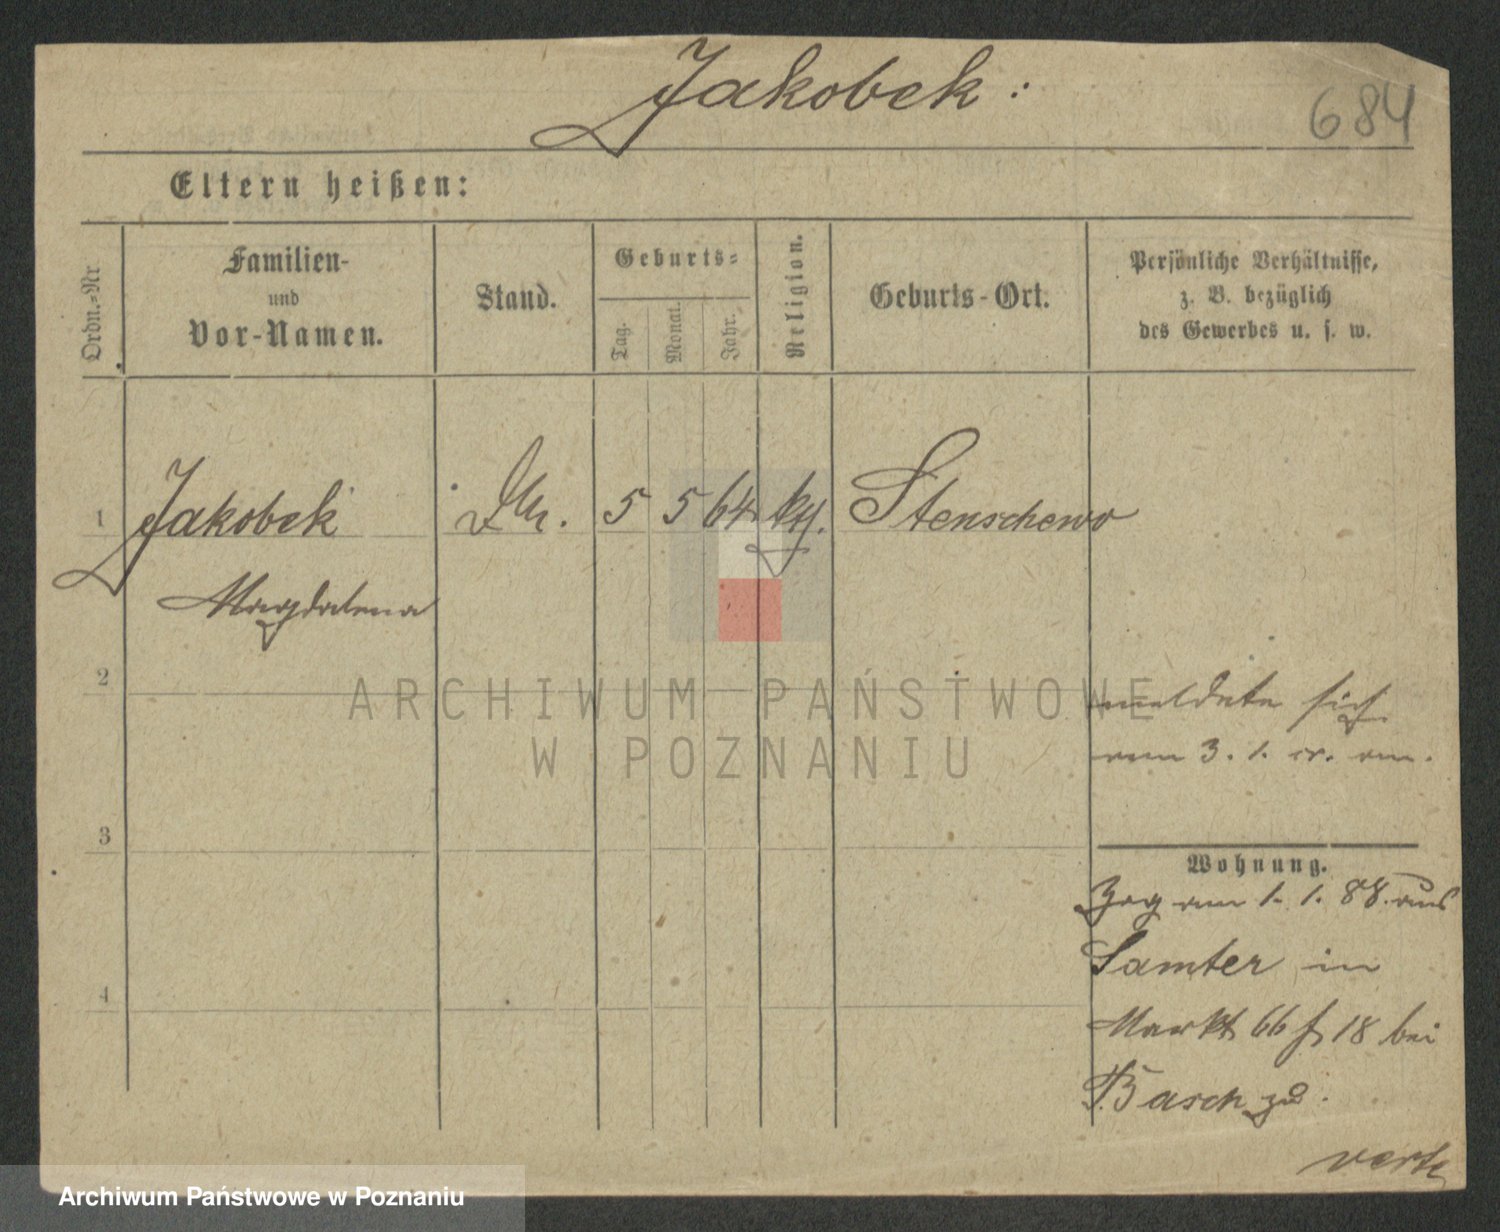 Jakobek:
684
Eltern heißen:
Ordn.-Nr
Familien-
und
Vor-Namen.
Stand.
Geburts-
Tag.
Monat.
Jahr.
Religion.
Geburts-Ort.
Persönliche Verhältnisse,
z. B. bezüglich
des Gewerbes u. s. w.
1 Jakobek 5 5 64 Stenschewo
Magdalena
2
meldete sich
am 3. 1. cr. an.
3
Wohnung.
Zog am 1. 1. 88. aus
Samter in
Markt 66 f 18 bei
Basch zu.
4
verte
ARCHIWUM PAŃSTWOWE
W POZNANIU
Archiwum Państwowe w Poznaniu